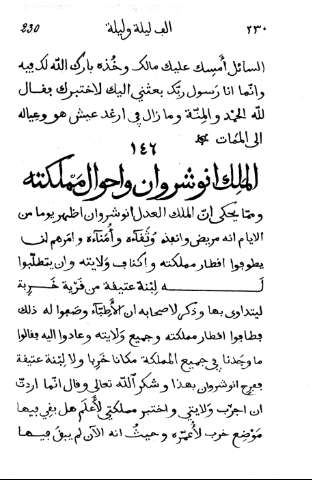 ٢٣٠ الف ليلة وليلة 230
السائل أمسك عليك مالك وخذه بارك الله لك فيه
وانما انا رسول ربّك بعثني اليك لاختبرك فقال
لله الحمد والمنّة وما زال في ارغد عيش هو وعياله
الى الممات
١٤٦
الملك انوشروان واحوال مملكته
وممّا يحكى انّ الملك العدل انوشروان اظهر يوما من
الايام انه مريض وانفذ وُثقاءَه وأُمناءَه وامرهم ان
يطوفوا اقطار مملكته واكناف ولايته وان يتطلّبوا
لــه لبْنة عتيقة من قرْية خَرِبة
ليتداوى بها وذكر لاصحابه ان الأَطبّاء وصفوا له ذلك
فطافوا اقطار مملكته وجميع ولايته وعادوا اليه فقالوا
ما وجدنا في جميع المملكة مكانا خَرِبا ولا لِبْنة عتيقة
ففرح انوشروان بهذا وشكر الله تعالى وقال انما اردت
ان اجرّب ولايتي واختبر مملكتي لأعلم هل بقي فيها
مَوْضِع خرِب لأُعمّره وحيث انه الآن لم يبق فيها